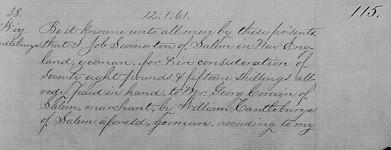 38. 12:1:61. 115.
Be it knowne unto all men by these psents,
that I Job Swinerton of Salem in New Eng-
land, yeoman, for & in consideration of
seventy eight pounds & fifteene shillings all-
redy paid in hand, to Mr. Georg Corwin of
Salem, marchant, by William Cantleburye
of Salem aforesd, yeoman, according to my